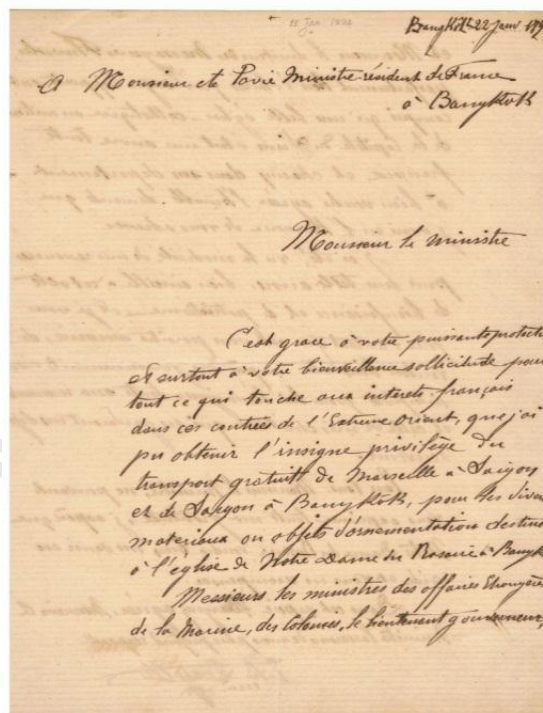 22 Jan 1894
Bangkok 22 Janv 189
A Monsieur Pavie Ministre résident de France
à Bangkok
Monsieur le ministre
C'est grace à votre puissante protecti
et surtout à votre bienveillance sollicitude pour
tout ce qui touche aux interets français
dans ces contrées de l'Extreme Orient, que j'ai
pu obtenir l'insigne privilège du
transport gratuit de Marseille à Saigon
et de Saigon à Bangkok, pour les diver
materiaux ou objets d'ornementation destiné
à l'église de Notre Dame du Rosaire à Bangk
Messieurs les ministres des affaires Etrangère
de la Marine, des Colonies, le lieutenant gouverneur,